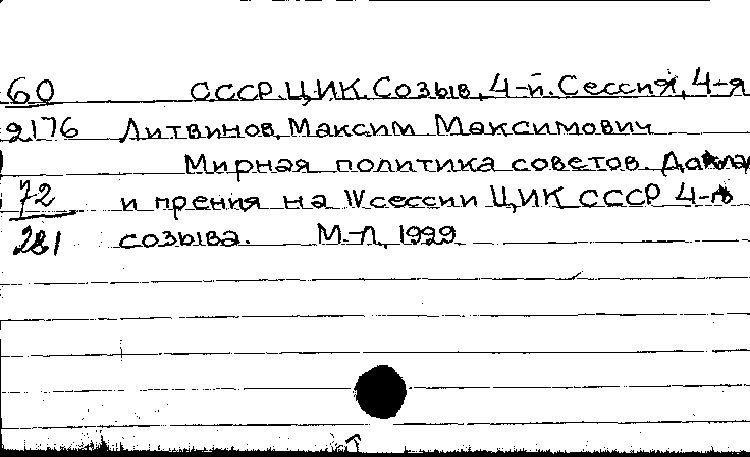 60 СССР. ЦИК. Созыв, 4-й. Сессия, 4-я
2176 Литвинов, Максим Максимович
Мирная политика советов. Доклад
72 и прения на IV сессии ЦИК СССР 4-го
281 созыва. М.-Л, 1929